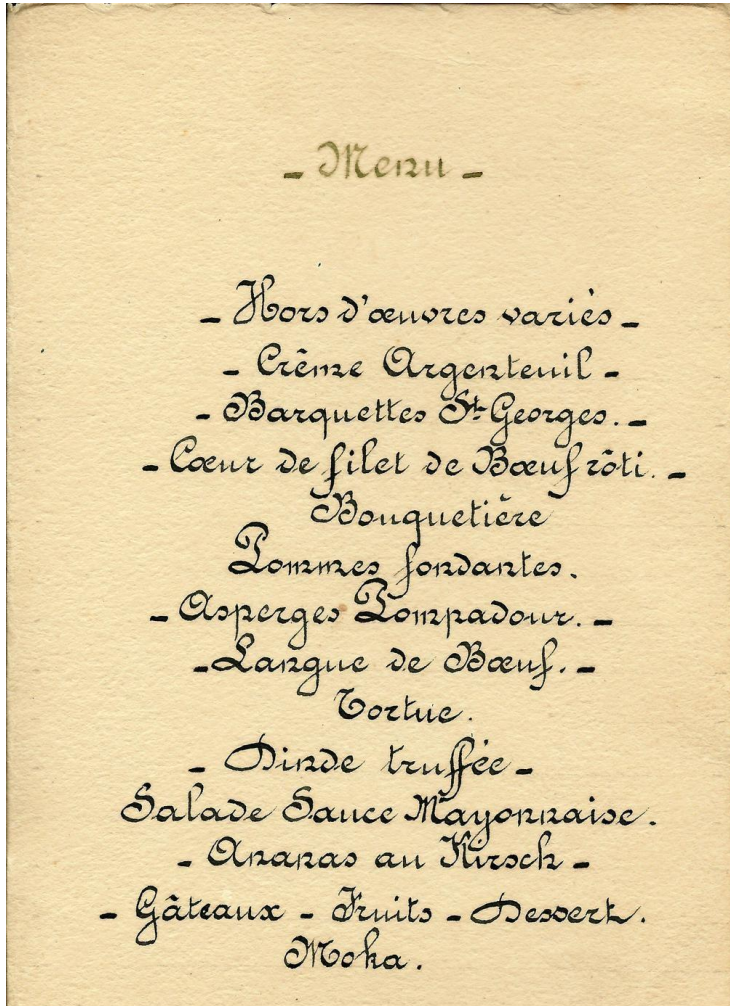 - Menu -
- Hors d'œuvres variés -
- Crême Argenteuil -
- Barquettes St Georges. -
- Cœur de filet de Bœuf rôti. -
Bouquetière
Pommes fondantes.
- Asperges Pompadour. -
- Langue de Bœuf. -
Tortue.
- Dinde truffée -
Salade Sauce Mayonnaise.
- Ananas au Kirsch -
- Gâteaux - Fruits - Dessert.
Moka.